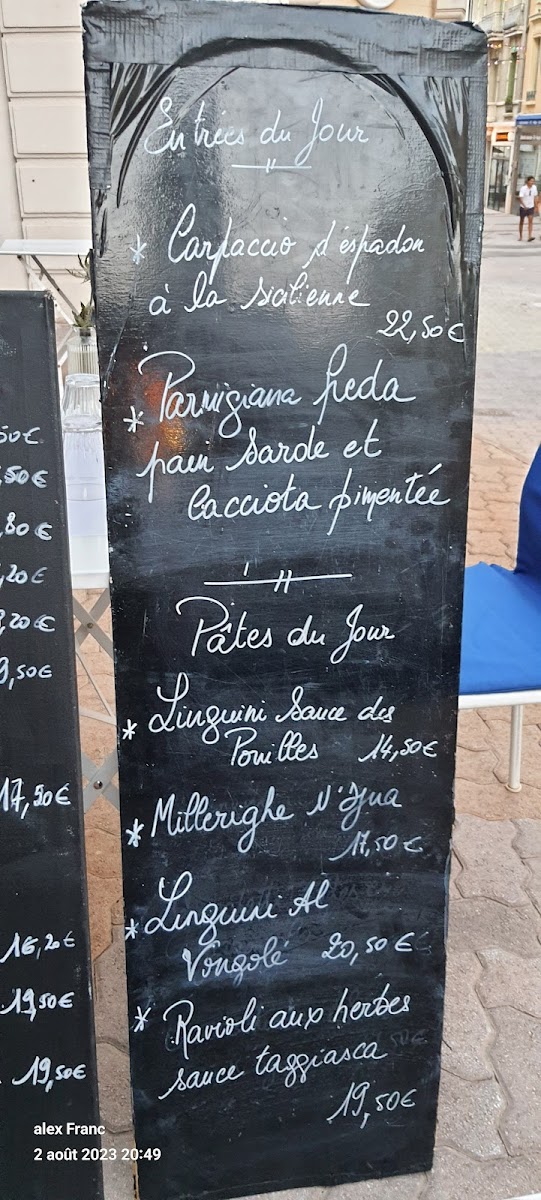 Entrées du Jour
* Carpaccio d'éspadon
à la sicilienne
22,50€
* Parmigiana freda
pain Sarde et
Cacciota pimentée
Pâtes du Jour
* Linguini Sauce des
Pouilles 14,50€
* Millerighe N'Djua
17,50€
* Linguini Al
Vôngolé 20,50€
* Ravioli aux herbes
sauce taggiasca
19,50€
50€
,50€
,80€
,20€
,20€
9,50€
17,20€
16,20€
19,50€
19,50€
alex Franc
2 août 2023 20:49